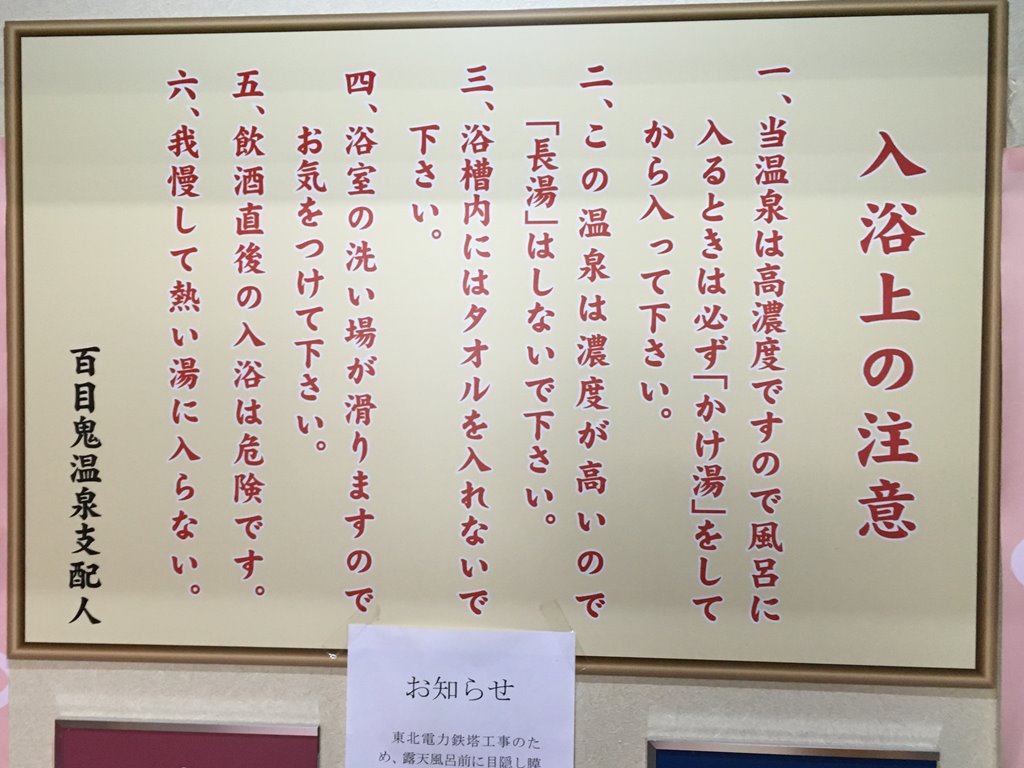 入浴上の注意
一、当温泉は高濃度ですので風呂に
入るときは必ず「かけ湯」をして
から入って下さい。
二、この温泉は濃度が高いので
「長湯」はしないで下さい。
三、浴槽内にはタオルを入れないで
下さい。
四、浴室の洗い場が滑りますので
お気をつけて下さい。
五、飲酒直後の入浴は危険です。
六、我慢して熱い湯に入らない。
百目鬼温泉支配人
お知らせ
東北電力鉄塔工事のた
め、露天風呂前に目隠し